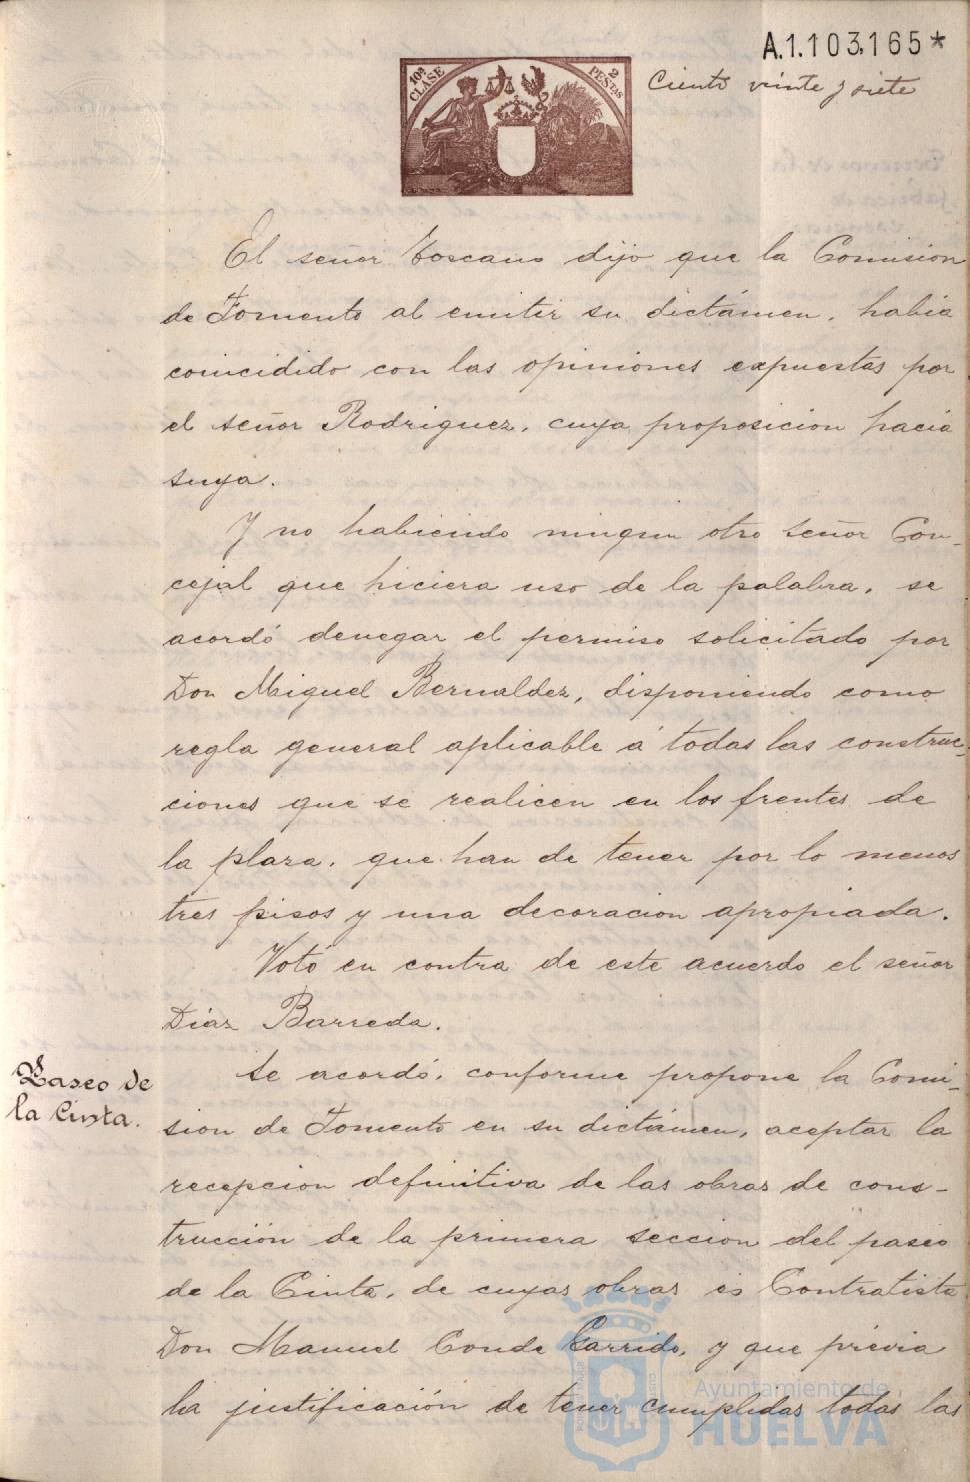 A.1.103,165*
10ª CLASE
2 PESTAS
Ciento veinte y siete
El señor Toscano dijo que la Comision
de Fomento al emitir su dictámen, habia
coincidido con las opiniones expuestas por
el señor Rodriguez, cuya proposicion hacia
suya.
Y no habiendo ningun otro señor Con-
cejal que hiciera uso de la palabra, se
acordó denegar el permiso solicitado por
Don Miguel Bernaldez, disponiendo como
regla general aplicable á todas las construc-
ciones que se realicen en los frentes de
la plaza, que han de tener por lo menos
tres pisos y una decoracion apropiada.
Votó en contra de este acuerdo el señor
Diaz Barreda.
Paseo de
la Cinta.
Se acordó, conforme propone la Comi-
sion de Fomento en su dictámen, aceptar la
recepcion definitiva de las obras de cons-
trucción de la primera seccion del paseo
de la Cinta, de cuyas obras es Contratista
Don Manuel Conde Garrido, y que prévia
la justificación de tener cumplidas todas las
Ayuntamiento de
HUELVA